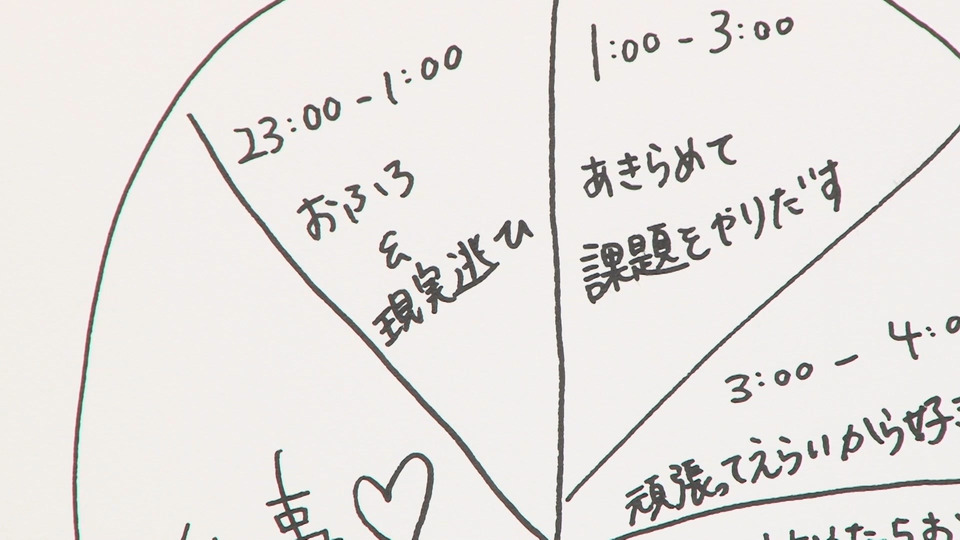 23:00-1:00
おふろ
&
現実逃ひ
1:00-3:00
あきらめて
課題をやりだす
3:00-4:0
頑張ってえらいから好き